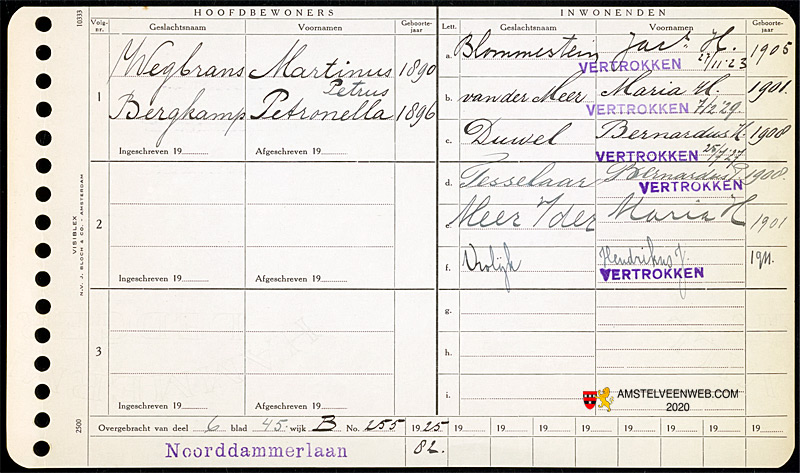 HOOFDBEWONERS
INWONENDEN
10333
Volg-nr. Geslachtsnaam Voornamen Geboorte-jaar
Lett. Geslachtsnaam Voornamen Geboorte-jaar
1
Wegbrans Martinus Petrus 1890
Bergkamp Petronella 1896
Ingeschreven 19 Afgeschreven 19
2
Ingeschreven 19 Afgeschreven 19
3
Ingeschreven 19 Afgeschreven 19
a. Blommestein Jac⁸ H. 1905
VERTROKKEN 27/11-23
b. van der Meer Maria H. 1901.
VERTROKKEN 7/2 '29.
c. Duwel Bernardus H. 1908
VERTROKKEN 25/7 '27
d. Tesselaar Bernardus P. 1908.
VERTROKKEN
e. Meer v/der Maria H 1901
f. Vrolijk Hendrikus J. 1911.
VERTROKKEN
g.
h.
i.
AMSTELVEENWEB.COM
2020
VISIBLEX
N.V. J. BLOCH & CO. - AMSTERDAM
2500
Overgebracht van deel 6 blad 45. wijk B No. 255 1925 19 19 19 19 19 19 19 19
Noorddammerlaan 82.